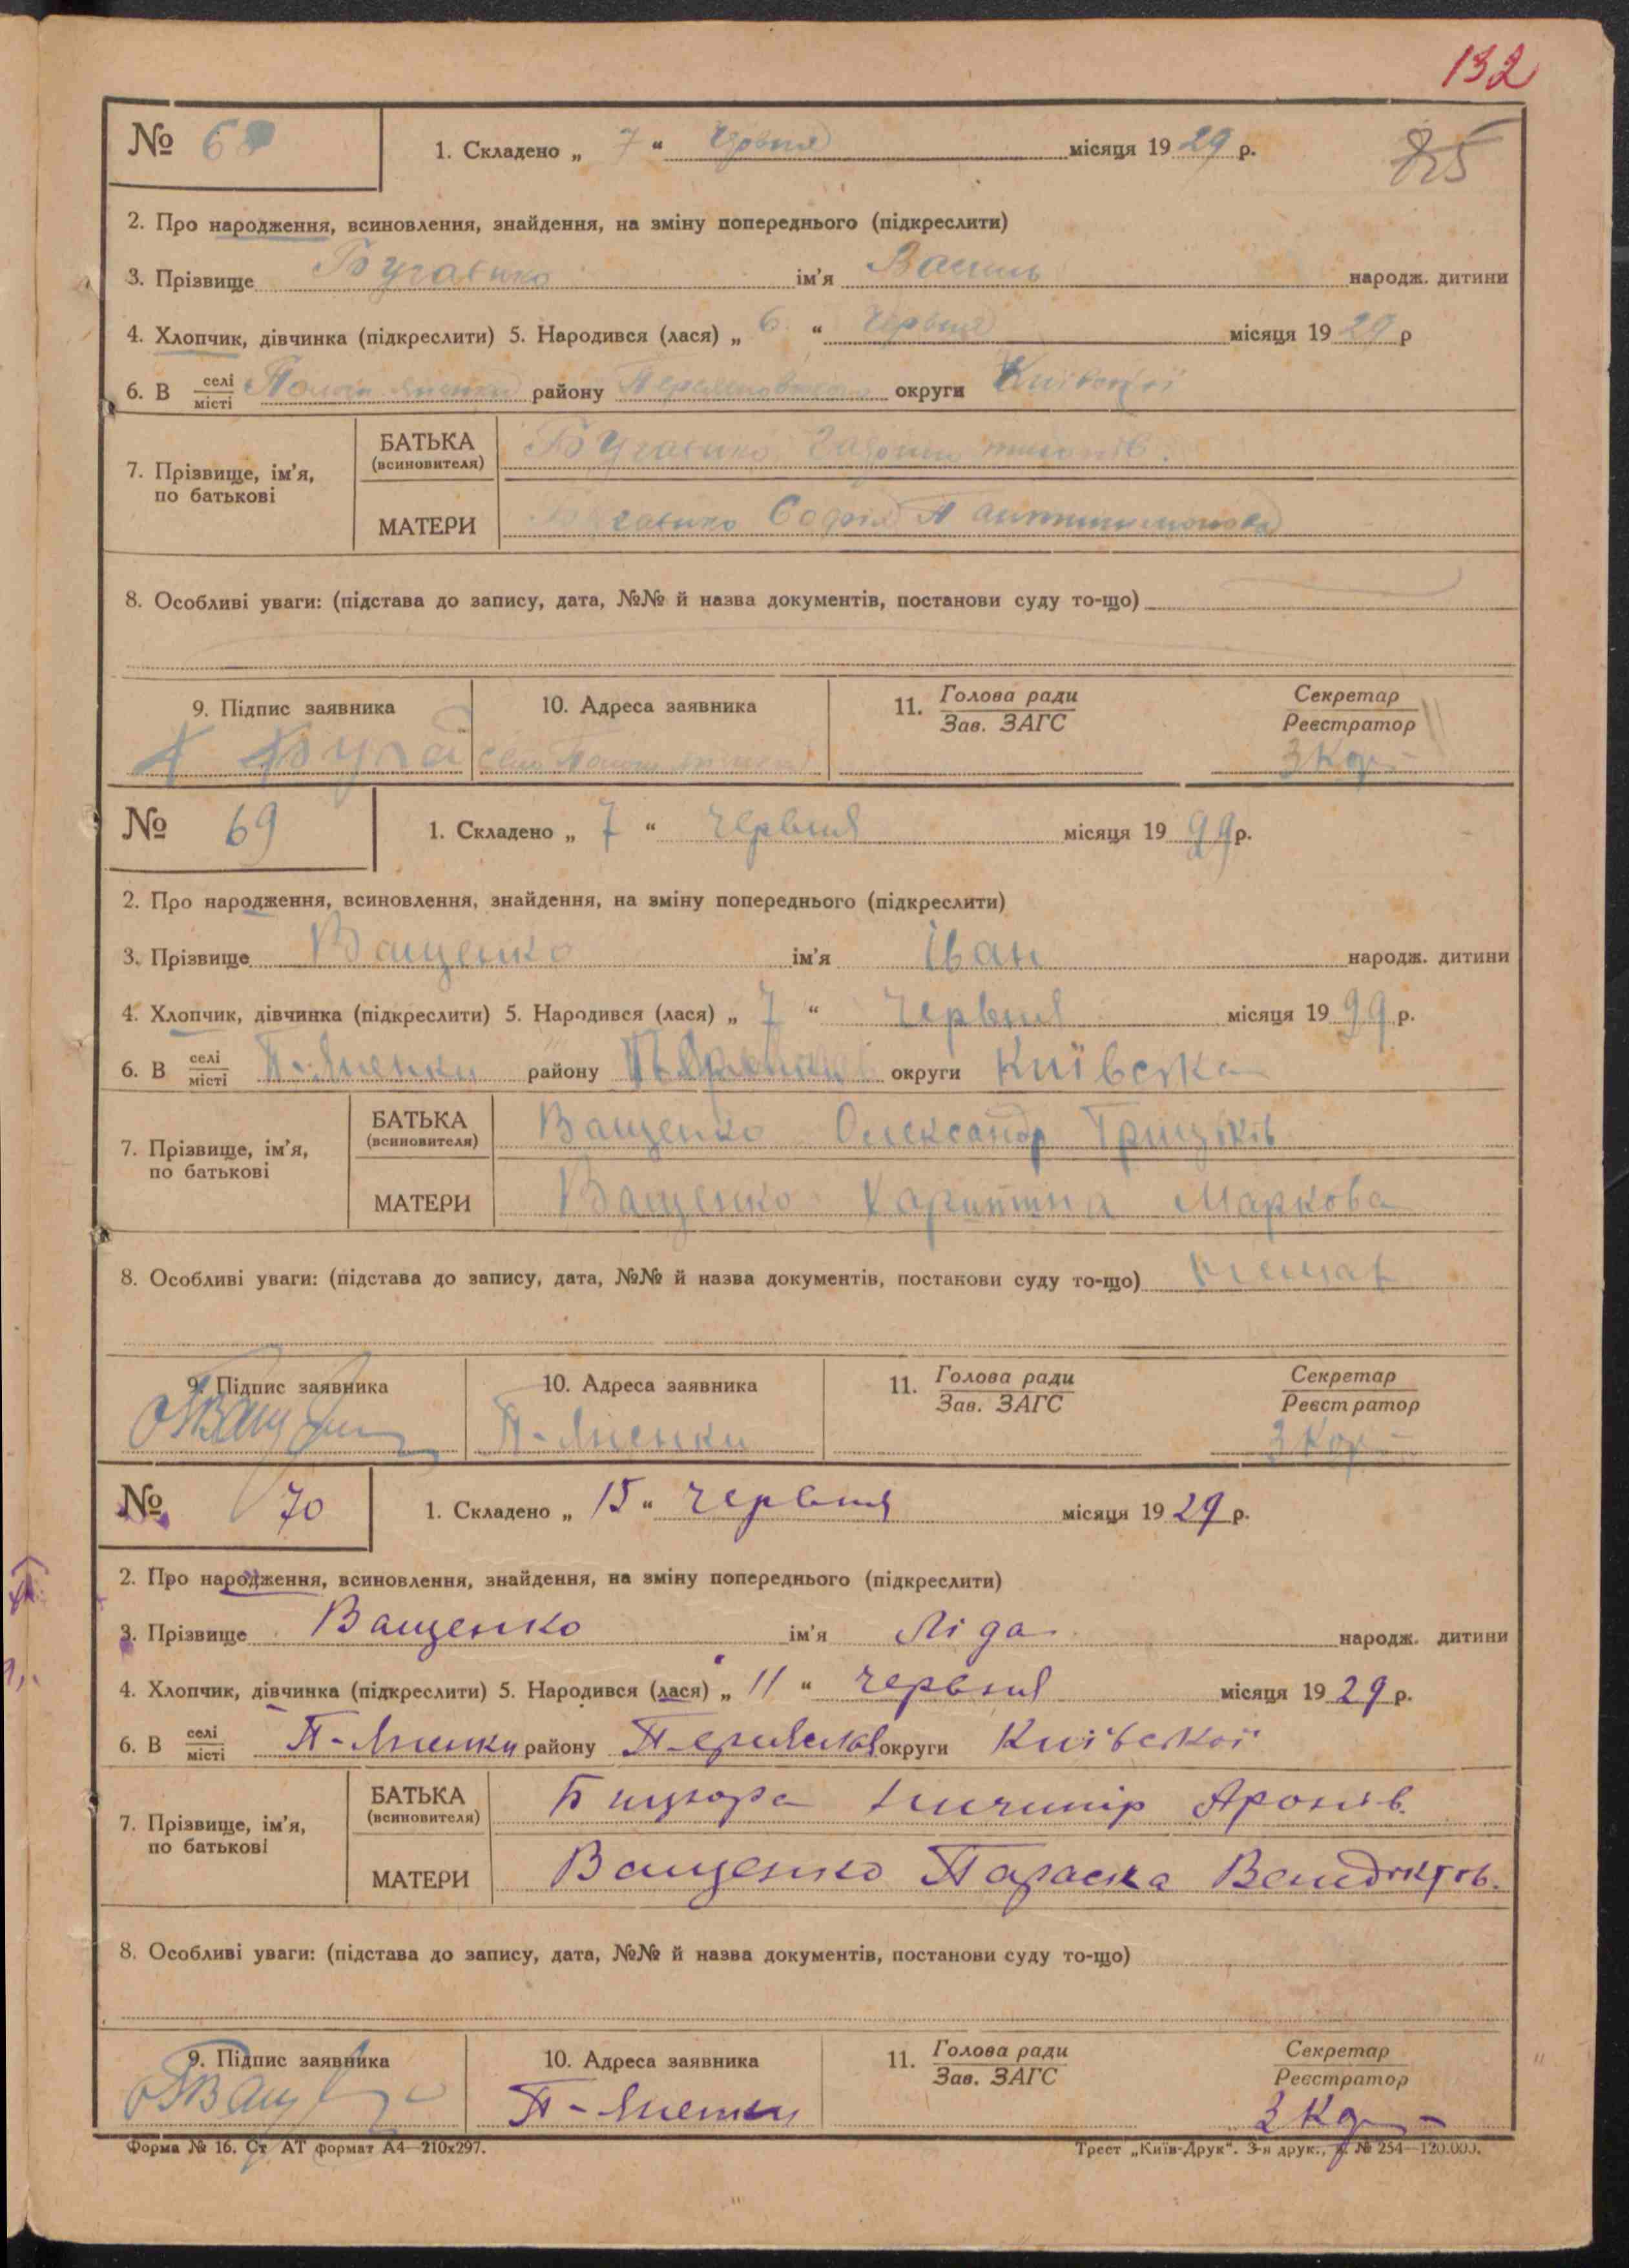 132
85
№ 68 1. Складено „ 7 “ Червня місяця 1929 р.
2. Про народження, всиновлення, знайдення, на зміну попереднього (підкреслити)
3. Прізвище Бугаєнко ім'я Василь народж. дитини
4. Хлопчик, дівчинка (підкреслити) 5. Народився (лася) „ 6 “ Червня місяця 1929 р
6. В селі/місті району округи Київської
7. Прізвище, ім'я, по батькові
БАТЬКА (всиновителя) Бугаєнко
МАТЕРИ Бугаєнко Софія Пантилимонова
8. Особливі уваги: (підстава до запису, дата, №№ й назва документів, постанови суду то-що)
9. Підпис заявника 10. Адреса заявника 11. Голова ради/Зав. ЗАГС Секретар/Реєстратор
Буга село
№ 69 1. Складено „ 7 “ червня місяця 1929 р.
2. Про народження, всиновлення, знайдення, на зміну попереднього (підкреслити)
3. Прізвище Ващенко ім'я Іван народж. дитини
4. Хлопчик, дівчинка (підкреслити) 5. Народився (лася) „ 7 “ червня місяця 1929 р.
6. В селі/місті П-Яненки району округи Київська
7. Прізвище, ім'я, по батькові
БАТЬКА (всиновителя) Ващенко Олександр Грицьків
МАТЕРИ Ващенко Харитина Маркова
8. Особливі уваги: (підстава до запису, дата, №№ й назва документів, постанови суду то-що)
9. Підпис заявника 10. Адреса заявника 11. Голова ради/Зав. ЗАГС Секретар/Реєстратор
П-Яненки
№ 70 1. Складено „ 15 “ червня місяця 1929 р.
2. Про народження, всиновлення, знайдення, на зміну попереднього (підкреслити)
3. Прізвище Ващенко ім'я Ліда народж. дитини
4. Хлопчик, дівчинка (підкреслити) 5. Народився (лася) „ 11 “ червня місяця 1929 р.
6. В селі/місті П-Яненки району Переяслав округи Київської
7. Прізвище, ім'я, по батькові
БАТЬКА (всиновителя) Бицюра Ничипір Аронів.
МАТЕРИ Ващенко Параска Венедиктов.
8. Особливі уваги: (підстава до запису, дата, №№ й назва документів, постанови суду то-що)
9. Підпис заявника 10. Адреса заявника 11. Голова ради/Зав. ЗАГС Секретар/Реєстратор
П-Яненки
Форма № 16. Ст АТ формат А4—210х297. Трест „Київ-Друк“. 3-я друк., з. № 254—120.000.